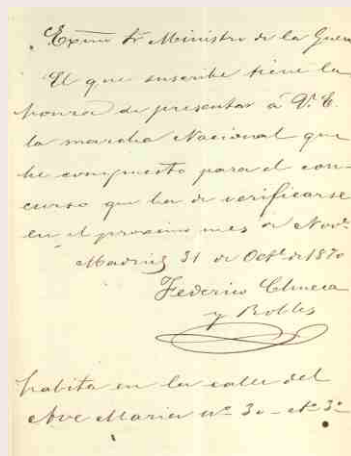 Exmo Sr Ministro de la Guer
El que suscribe tiene la
honra de presentar á V. E.
la marcha Nacional que
he compuesto para el con-
curso que ha de verificarse
en el proximo mes de Novre
Madrid 31 de Octe de 1870
Federico Chueca
y Robles
habita en la calle del
Ave Maria nº 30 - cto 3º